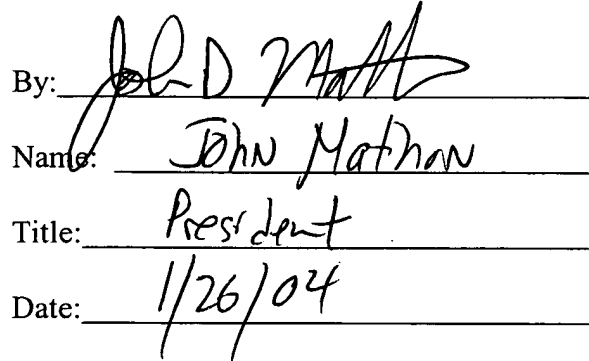 By: John D
Name: John Mathon
Title: President
Date: 1/26/04